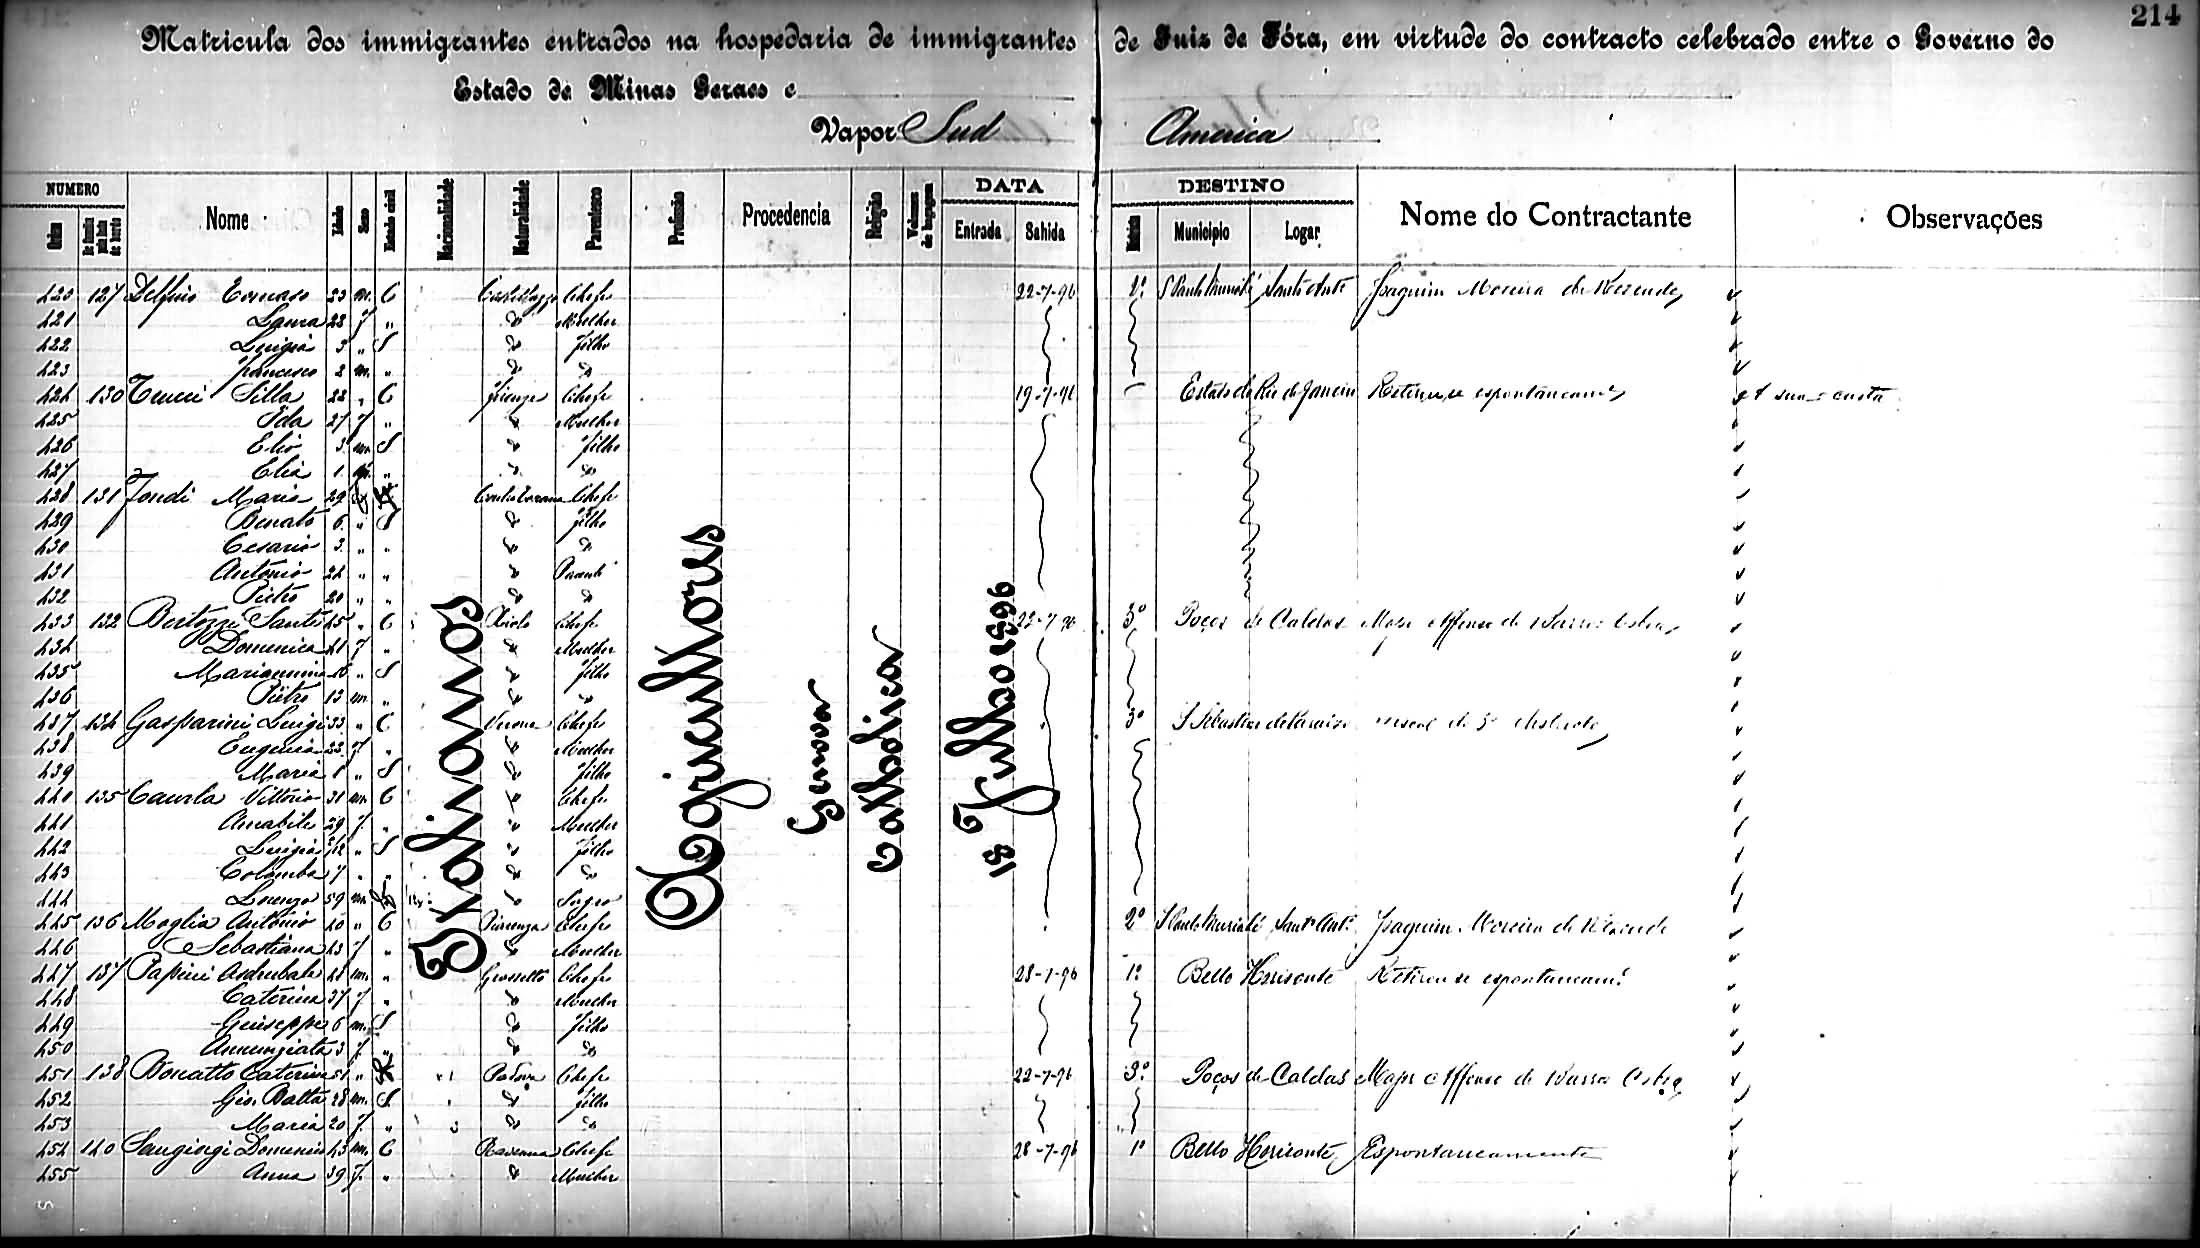 214
Matricula dos immigrantes entrados na hospedaria de immigrantes de Juiz de Fóra, em virtude do contracto celebrado entre o Governo do
Estado de Minas Geraes e
Vapor Sud America
NUMERO DATA DESTINO
Ordem Nome Idade Sexo Estado civil Nacionalidade Naturalidade Parentesco Profissão Procedencia Religião Volumes de bagagem Entrada Sahida Municipio Logar Nome do Contractante Observações
Italianos
Agricultores
Genova
Catholica
18 Julho 1896
420 127 Tomaso 23 m. C Chefe 22-7-96 2º S Paulo Muriahé Santo Antº Joaquim Moreira de Rezende
421 Laura 23 f " do Mulher
422 Luigia 3 " S do filho
423 Francesco 2 m. " do do
424 130 Silla 22 " C Firenze Chefe 19-7-96 Estado do Rio de Janeiro Retirou-se espontaneamte A sua custa
425 Ida 27 f " do Mulher
426 Elio 3 m. S do filho
427 Elia 1 " do
428 131 Tondi Maria 29 Chefe
429 6 " S do filho
430 Cesario 3 " " do do
431 Antonio 24 " " do Parente
432 Pietro 20 " " do do
433 132 Bertozzi Santi 45 " C Chefe 22-7-96 3º Poços de Caldas Major Affonso de
434 Domenica 41 f " do Mulher
435 Mariannina 16 " S do filho
436 Pietro 13 m. " do do
437 134 Gasparini Luigi 33 " C Verona Chefe 3º S Sebastião do Paraiso do 3º districto
438 Eugenia 23 f " do Mulher
439 Maria 1 " S do filho
440 135 Vittorio 31 m. C do Chefe
441 Amabile 29 f. " do Mulher
442 Luigia " S do filho
443 Colomba 7 " do do
444 Lorenzo 59 m. do Sogro
445 136 Maglia Antonio 40 " C Piacenza Chefe 2º S Paulo Muriahé Santo Antº Joaquim Moreira de Rezende
446 Sebastiana 43 f " do Mulher
447 137 Papini Asdrubale 41 m. " Grossetto Chefe 28-7-96 1º Bello Horisonte Retirou se espontaneamte
448 Caterina 37 f " do Mulher
449 Guiseppe 6 m. S do filho
450 Annunziata 3 f. " do do
451 138 Caterina 51 " Padova Chefe 22-7-96 3º Poços de Caldas Major Affonso de
452 Gio. Batta 28 m. S do filho
453 Maria 20 f. " do do
454 140 Sangiorgi Domenico 43 m. C Ravenna Chefe 28-7-96 1º Bello Horisonte Espontaneamente
455 Anna 39 f. " do Mulher